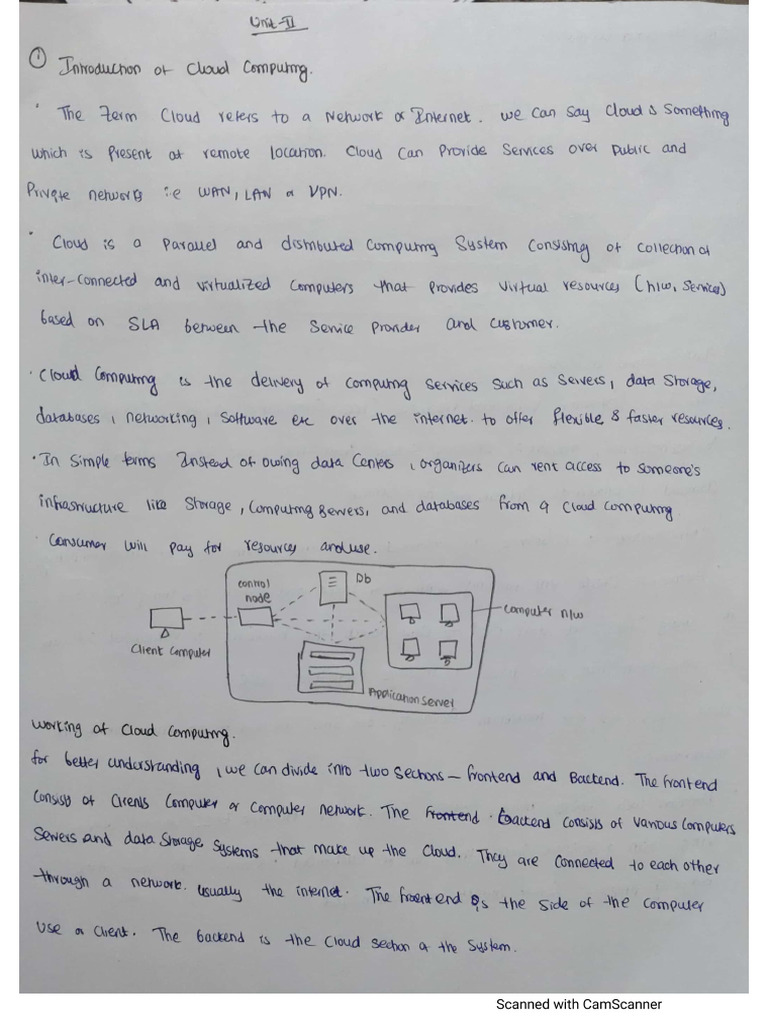 Unit-II
① Introduction of Cloud Computing.
· The Term Cloud refers to a Network or Internet. we can say Cloud is something
which is Present at remote location. Cloud Can Provide Services over public and
Private networks i.e WAN, LAN or VPN.
· Cloud is a Parallel and distributed Computing System Consisting of Collection of
inter-connected and virtualized Computers that provides virtual resources (h/w, Services)
based on SLA between the Service Provider and Customer.
· Cloud Computing is the delivery of computing services such as Servers, data Storage,
databases, networking, software etc over the internet. to offer flexible & faster resources.
· In simple terms Instead of owing data Centers, organizers can rent access to someone's
infrastructure like Storage, Computing Servers, and databases from a Cloud Computing
Consumer will pay for resources and use.
Control
node
Db
Computer n/w
Client Computer
Application Server
Working of Cloud Computing.
for better understanding, we can divide into two Sections - frontend and Backend. The frontend
Consists of Clients Computer or Computer network. The frontend backend consists of various Computers
Servers and data Storage Systems that make up the Cloud. They are Connected to each other
through a network. usually the internet. The frontend is the side of the Computer
Use or Client. The backend is the Cloud Section of the System.
Scanned with CamScanner